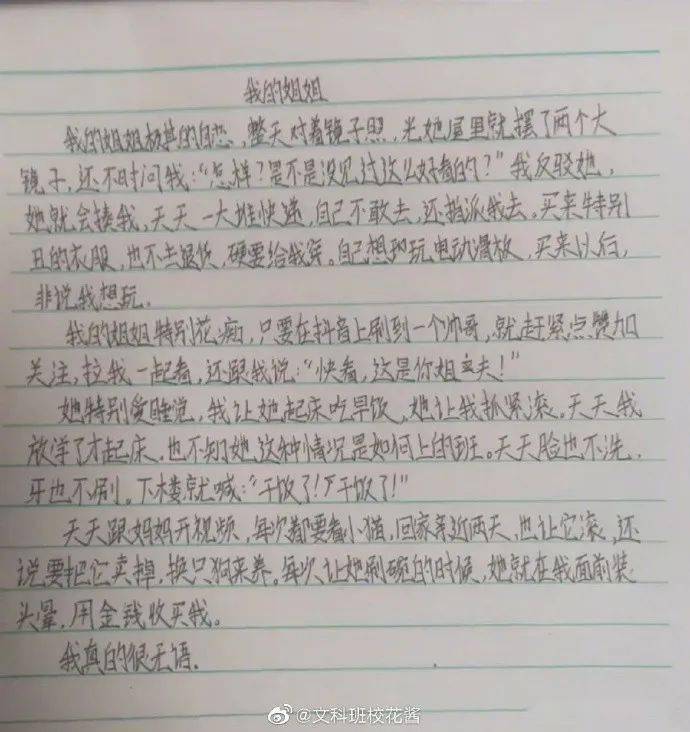 我的姐姐
我的姐姐极其的自恋，整天对着镜子照，光她屋里就摆了两个大
镜子，还不时问我：“怎样？是不是没见过这么好看的？”我反驳她，
她就会揍我，天天一大堆快递，自己不敢去，还指派我去，买来特别
丑的衣服，也不去退货，硬要给我穿。自己想玩电动滑板，买来以后，
非说我想玩．
我的姐姐特别花痴，只要在抖音上刷到一个帅哥，就赶紧点赞加
关注，拉我一起看，还跟我说：“快看，这是你姐夫！”
她特别爱睡觉，我让她起床吃早饭，她让我抓紧滚。天天我
放学了才起床，也不知她这种情况是如何上的班。天天脸也不洗，
牙也不刷。下楼就喊：“干饭了！干饭了！”
天天跟妈妈开视频，每次都要看小猫，回家亲近两天，也让它滚，还
说要把它卖掉，换只狗来养。每次让她刷碗的时候，她就在我面前装
头晕，用金钱收买我。
我真的很无语．
@文科班校花酱